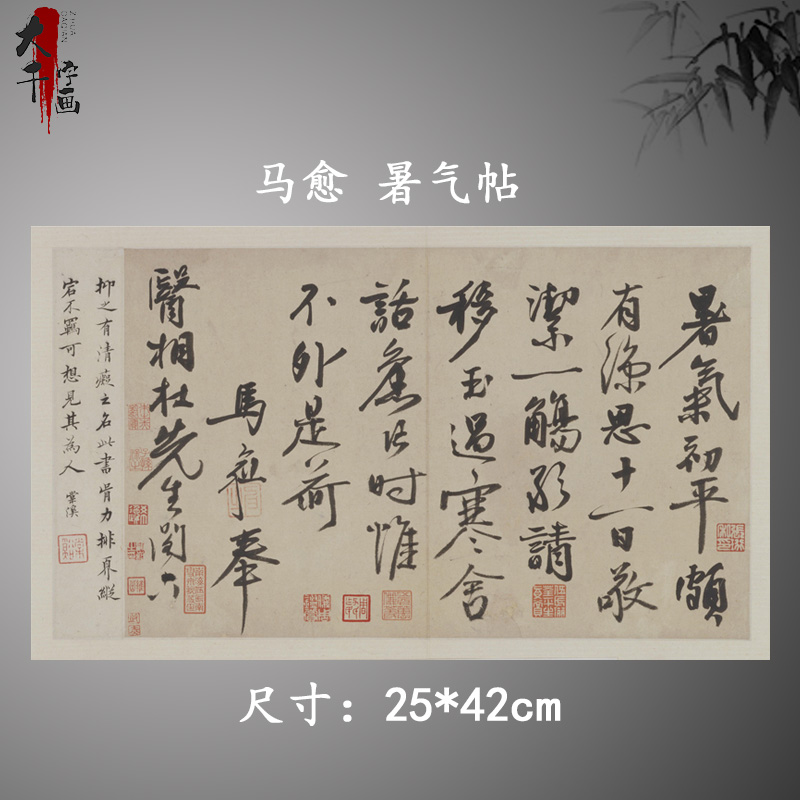 大千字画
ZHUA
DAQIAN
马愈 暑气帖
暑氣初平頗
有凉思十一日敬
潔一觴敢請
移玉過寒舍
話舊片时惟
不外是荷
馬愈奉
醫相杜先生閣下
抑之有清癡之名此書骨力排奡蹤
宕不羈可想見其為人 棠溪
尺寸：25*42cm